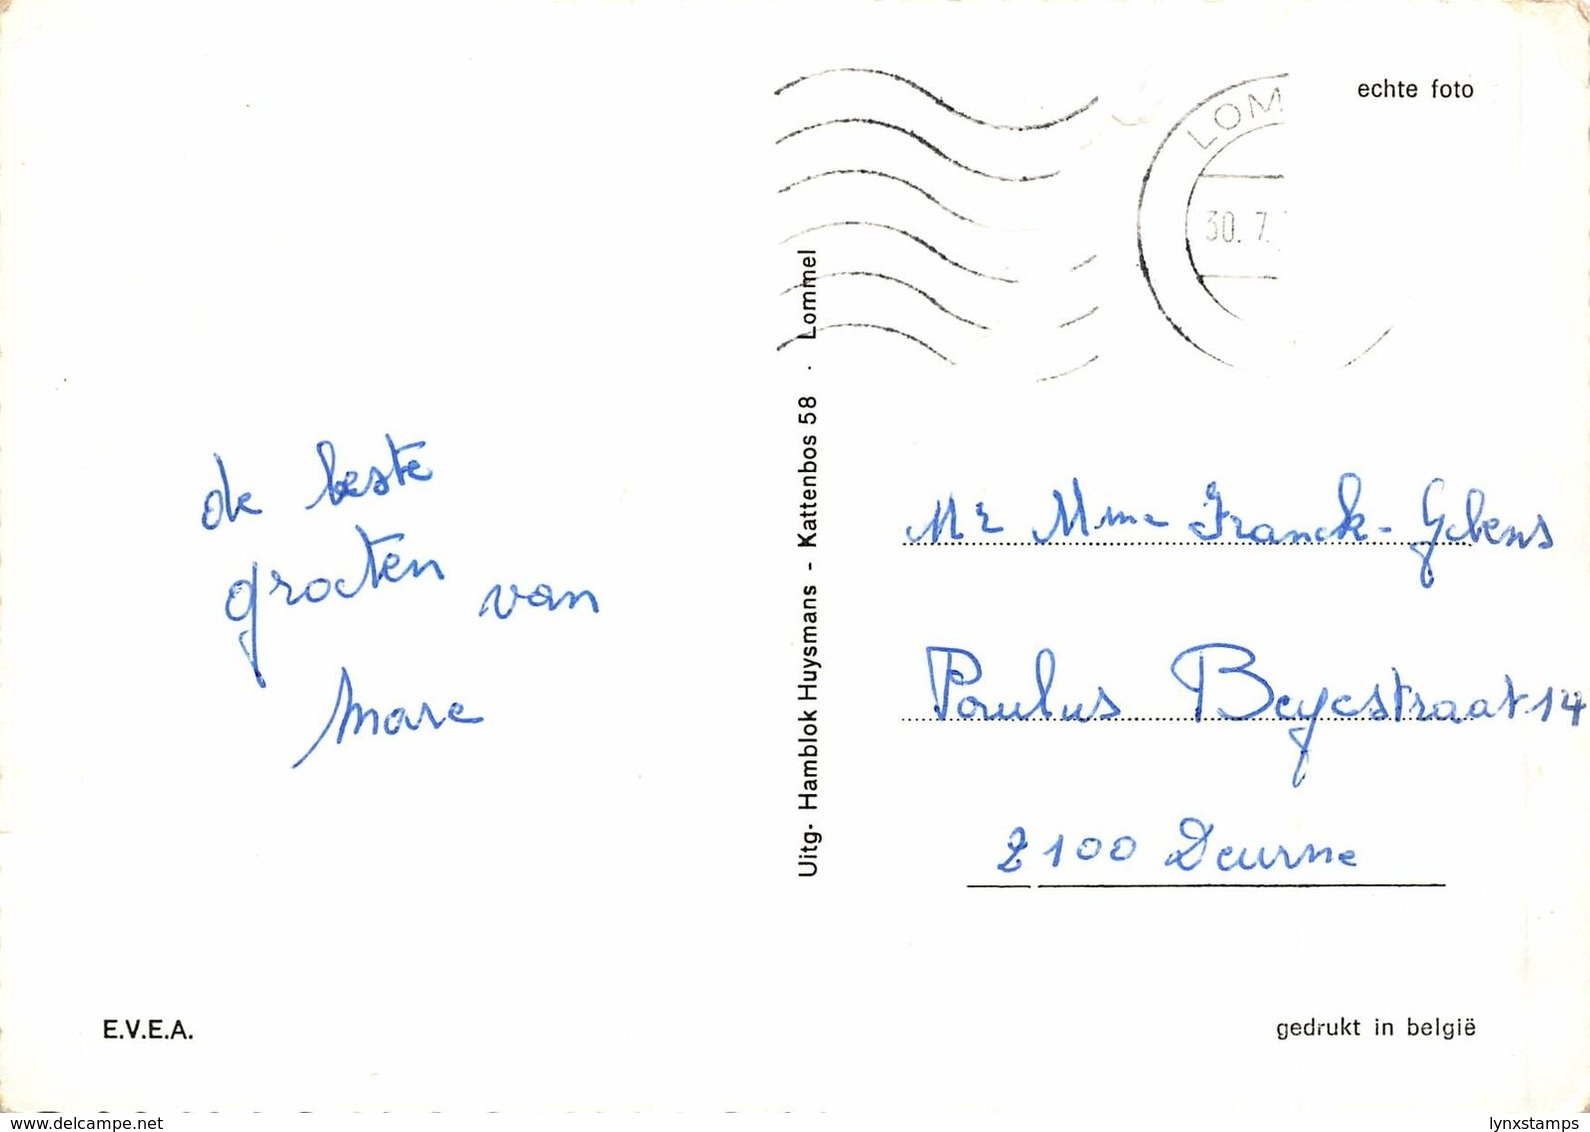 echte foto
LOM
30. 7.
de beste
groeten van
Marc
Uitg. Hamblok Huysmans - Kattenbos 58 . Lommel
Mr Mme Franck-
Paulus Beyestraat 14
2100 Deurne
E.V.E.A.
gedrukt in belgië
www.delcampe.net
lynxstamps